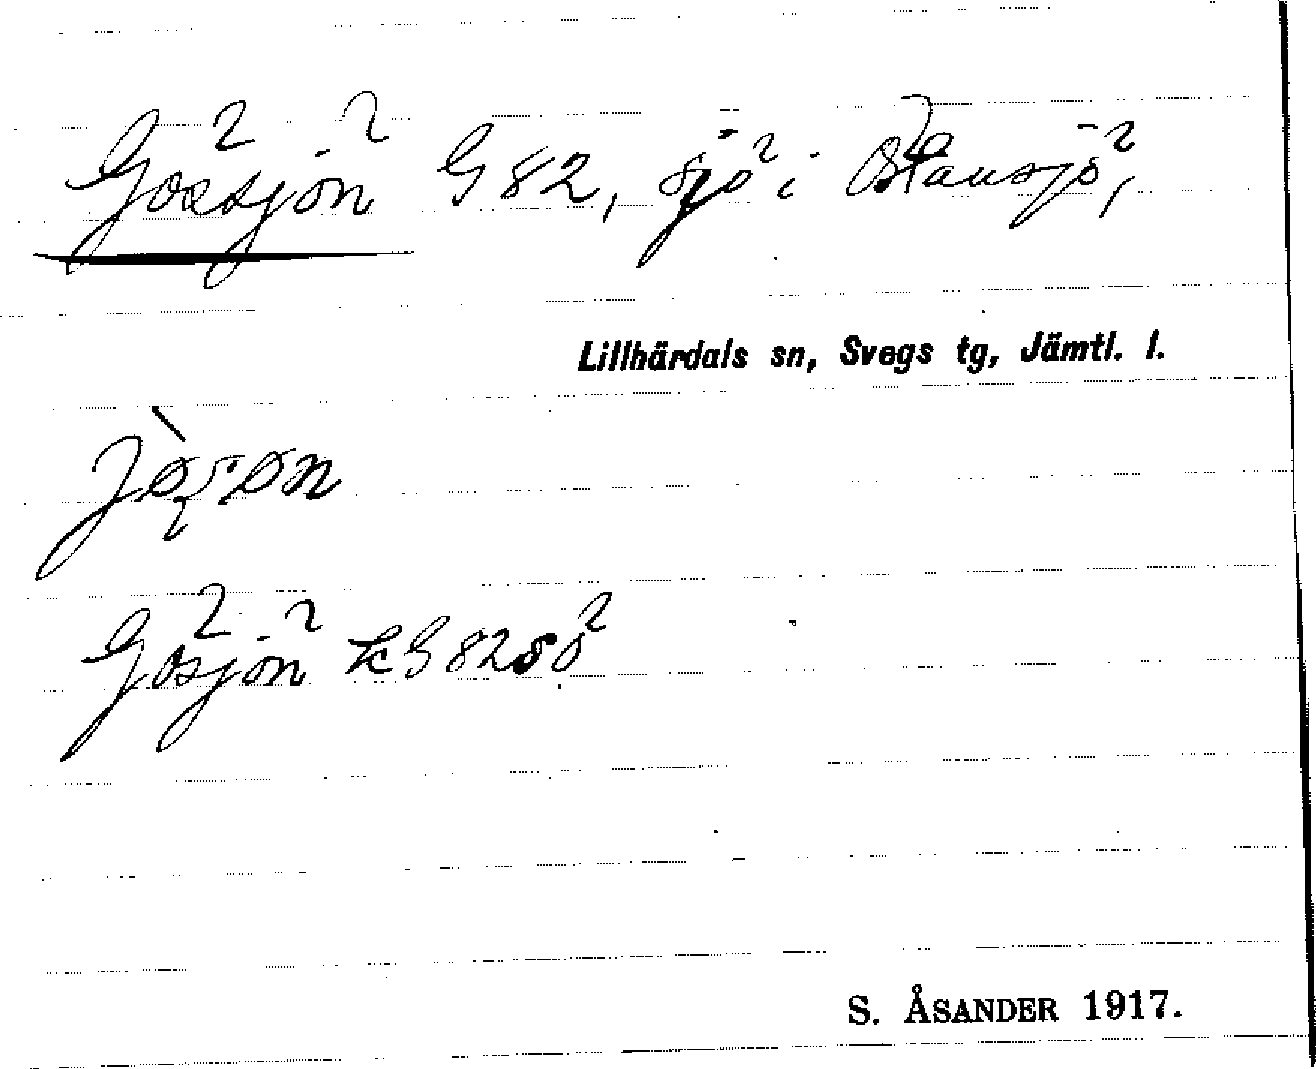 Gössjön G 82, sjö i Östansjö,
Lillhärdals sn, Svegs tg, Jämtl. l.
Gösjön k G 82 sö
S. ÅSANDER 1917.